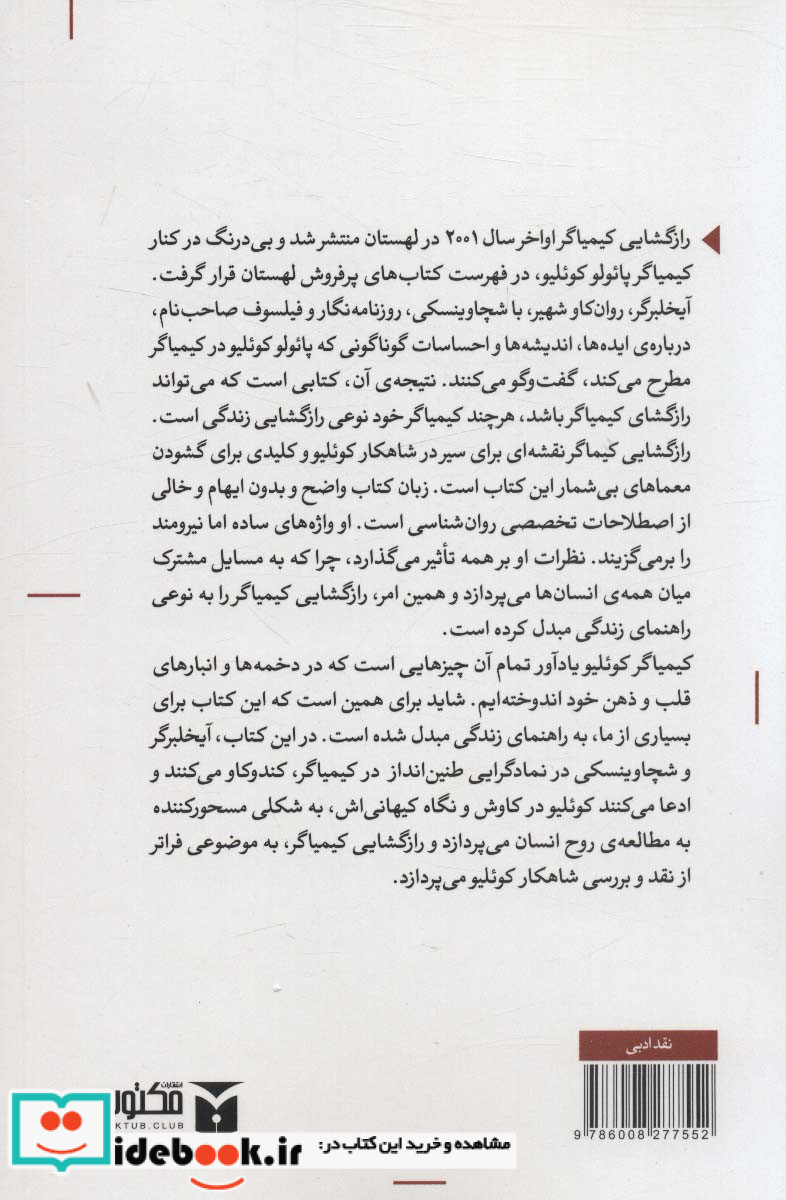 رازگشایی کیمیاگر اواخر سال ۲۰۰۱ در لهستان منتشر شد و بی‌درنگ در کنار
کیمیاگر پائولو کوئلیو، در فهرست کتاب‌های پرفروش لهستان قرار گرفت.
آیخلبرگر، روان‌کاو شهیر، با شچاوینسکی، روزنامه‌نگار و فیلسوف صاحب‌نام،
درباره‌ی ایده‌ها، اندیشه‌ها و احساسات گوناگونی که پائولو کوئلیو در کیمیاگر
مطرح می‌کند، گفت‌وگو می‌کنند. نتیجه‌ی آن، کتابی است که می‌تواند
رازگشای کیمیاگر باشد، هرچند کیمیاگر خود نوعی رازگشایی زندگی است.
رازگشایی کیماگر نقشه‌ای برای سیر در شاهکار کوئلیو و کلیدی برای گشودن
معماهای بی‌شمار این کتاب است. زبان کتاب واضح و بدون ایهام و خالی
از اصطلاحات تخصصی روان‌شناسی است. او واژه‌های ساده اما نیرومند
را برمی‌گزیند. نظرات او بر همه تأثیر می‌گذارد، چرا که به مسایل مشترک
میان همه‌ی انسان‌ها می‌پردازد و همین امر، رازگشایی کیمیاگر را به نوعی
راهنمای زندگی مبدل کرده است.
کیمیاگر کوئلیو یادآور تمام آن چیزهایی است که در دخمه‌ها و انبارهای
قلب و ذهن خود اندوخته‌ایم. شاید برای همین است که این کتاب برای
بسیاری از ما، به راهنمای زندگی مبدل شده است. در این کتاب، آیخلبرگر
و شچاوینسکی در نمادگرایی طنین‌انداز در کیمیاگر، کندوکاو می‌کنند و
ادعا می‌کنند کوئلیو در کاوش و نگاه کیهانی‌اش، به شکلی مسحورکننده
به مطالعه‌ی روح انسان می‌پردازد و رازگشایی کیمیاگر، به موضوعی فراتر
از نقد و بررسی شاهکار کوئلیو می‌پردازد.
نقد ادبی
9 786008 277552
انتشارات
مکتوب
KTUB.CLUB
مشاهده و خرید این کتاب در:
idebook.ir